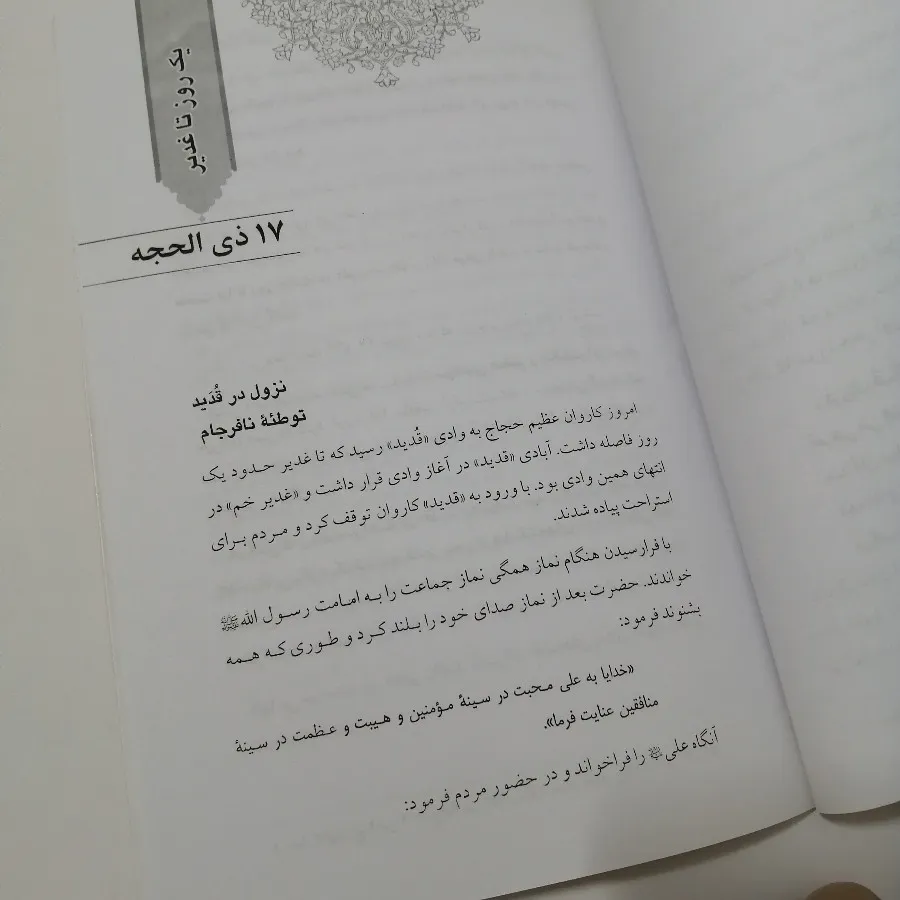 یک روز تا غدیر
۱۷ ذی الحجه
نزول در قُدَید
توطئهٔ نافرجام
امروز کاروان عظیم حجاج به وادی «قُدید» رسید که تا غدیر حدود یک
روز فاصله داشت. آبادی «قدید» در آغاز وادی قرار داشت و «غدیر خم» در
انتهای همین وادی بود. با ورود به «قدید» کاروان توقف کرد و مردم برای
استراحت پیاده شدند.
با فرارسیدن هنگام نماز همگی نماز جماعت را به امامت رسول الله ﷺ
خواندند. حضرت بعد از نماز صدای خود را بلند کرد و طوری که همه
بشنوند فرمود:
«خدایا به علی محبت در سینهٔ مؤمنین و هیبت و عظمت در سینهٔ
منافقین عنایت فرما».
آنگاه علی را فراخواند و در حضور مردم فرمود: